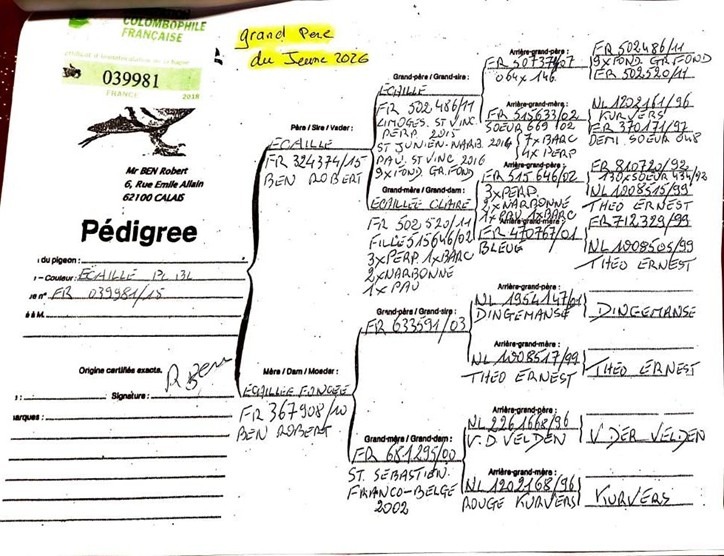 COLOMBOPHILE
FRANÇAISE
039981
FRANCE 2018
Mr BEN Robert
6, Rue Emile Allain
62100 CALAIS
Pédigree
du pigeon :
Couleur : ECAILLE BL BL
FR 039981/15
é à M.
Origine certifiée exacte.
Signature :
arques :
grand Père
du Jeune 2026
Père / Sire / Vader :
ECAILLE
FR 324374/15
BEN ROBERT
Mère / Dam / Moeder :
ECAILLEE FONCEE
FR 367908/10
BEN ROBERT
Grand-père / Grand-sire :
ECAILLE
FR 502486/11
LIMOGES. ST VINC
PERP. 2015
ST JUNIEN.NARB. 2016
PAU. ST VINC 2016
9x FOND GR.FOND
Grand-mère / Grand-dam :
ECAILLEE CLAIRE
FR 502520/11
FILLE 515646/02
3xPERP. 1xBARC
2xNARBONNE
1x PAU
Grand-père / Grand-sire :
FR 633591/03
Grand-mère / Grand-dam :
FR 681295/00
ST. SEBASTIEN.
FRANCO-BELGE
2002
Arrière-grand-père :
FR 507374/07
064x 146
Arrière-grand-mère :
FR 515633/02
SOEUR 669 102
7xBARC
4x PERP
Arrière-grand-père :
FR 515646/02
3xPERP.
2xNARBONNE
1xPAU 1xBARC
Arrière-grand-mère :
FR 470767/01
BLEUE
Arrière-grand-père :
NL 1954147/01
DINGEMANSE
Arrière-grand-mère :
NL 1008517/99
THEO ERNEST
Arrière-grand-père :
NL 2261668/96
V.D. VELDEN
Arrière-grand-mère :
NL 1202168/96
ROUGE KURVERS
FR 502486/11
9xFOND GR.FOND
FR 502520/11
NL 1202161/96
KURVERS
FR 370171/97
DEMI. SOEUR 048
FR 810720/92
130xSOEUR 434/92
NL 1008515/99
THEO ERNEST
FR 712329/99
NL 1008505/99
THEO ERNEST
DINGEMANSE
THEO ERNEST
V.DER VELDEN
KURVERS